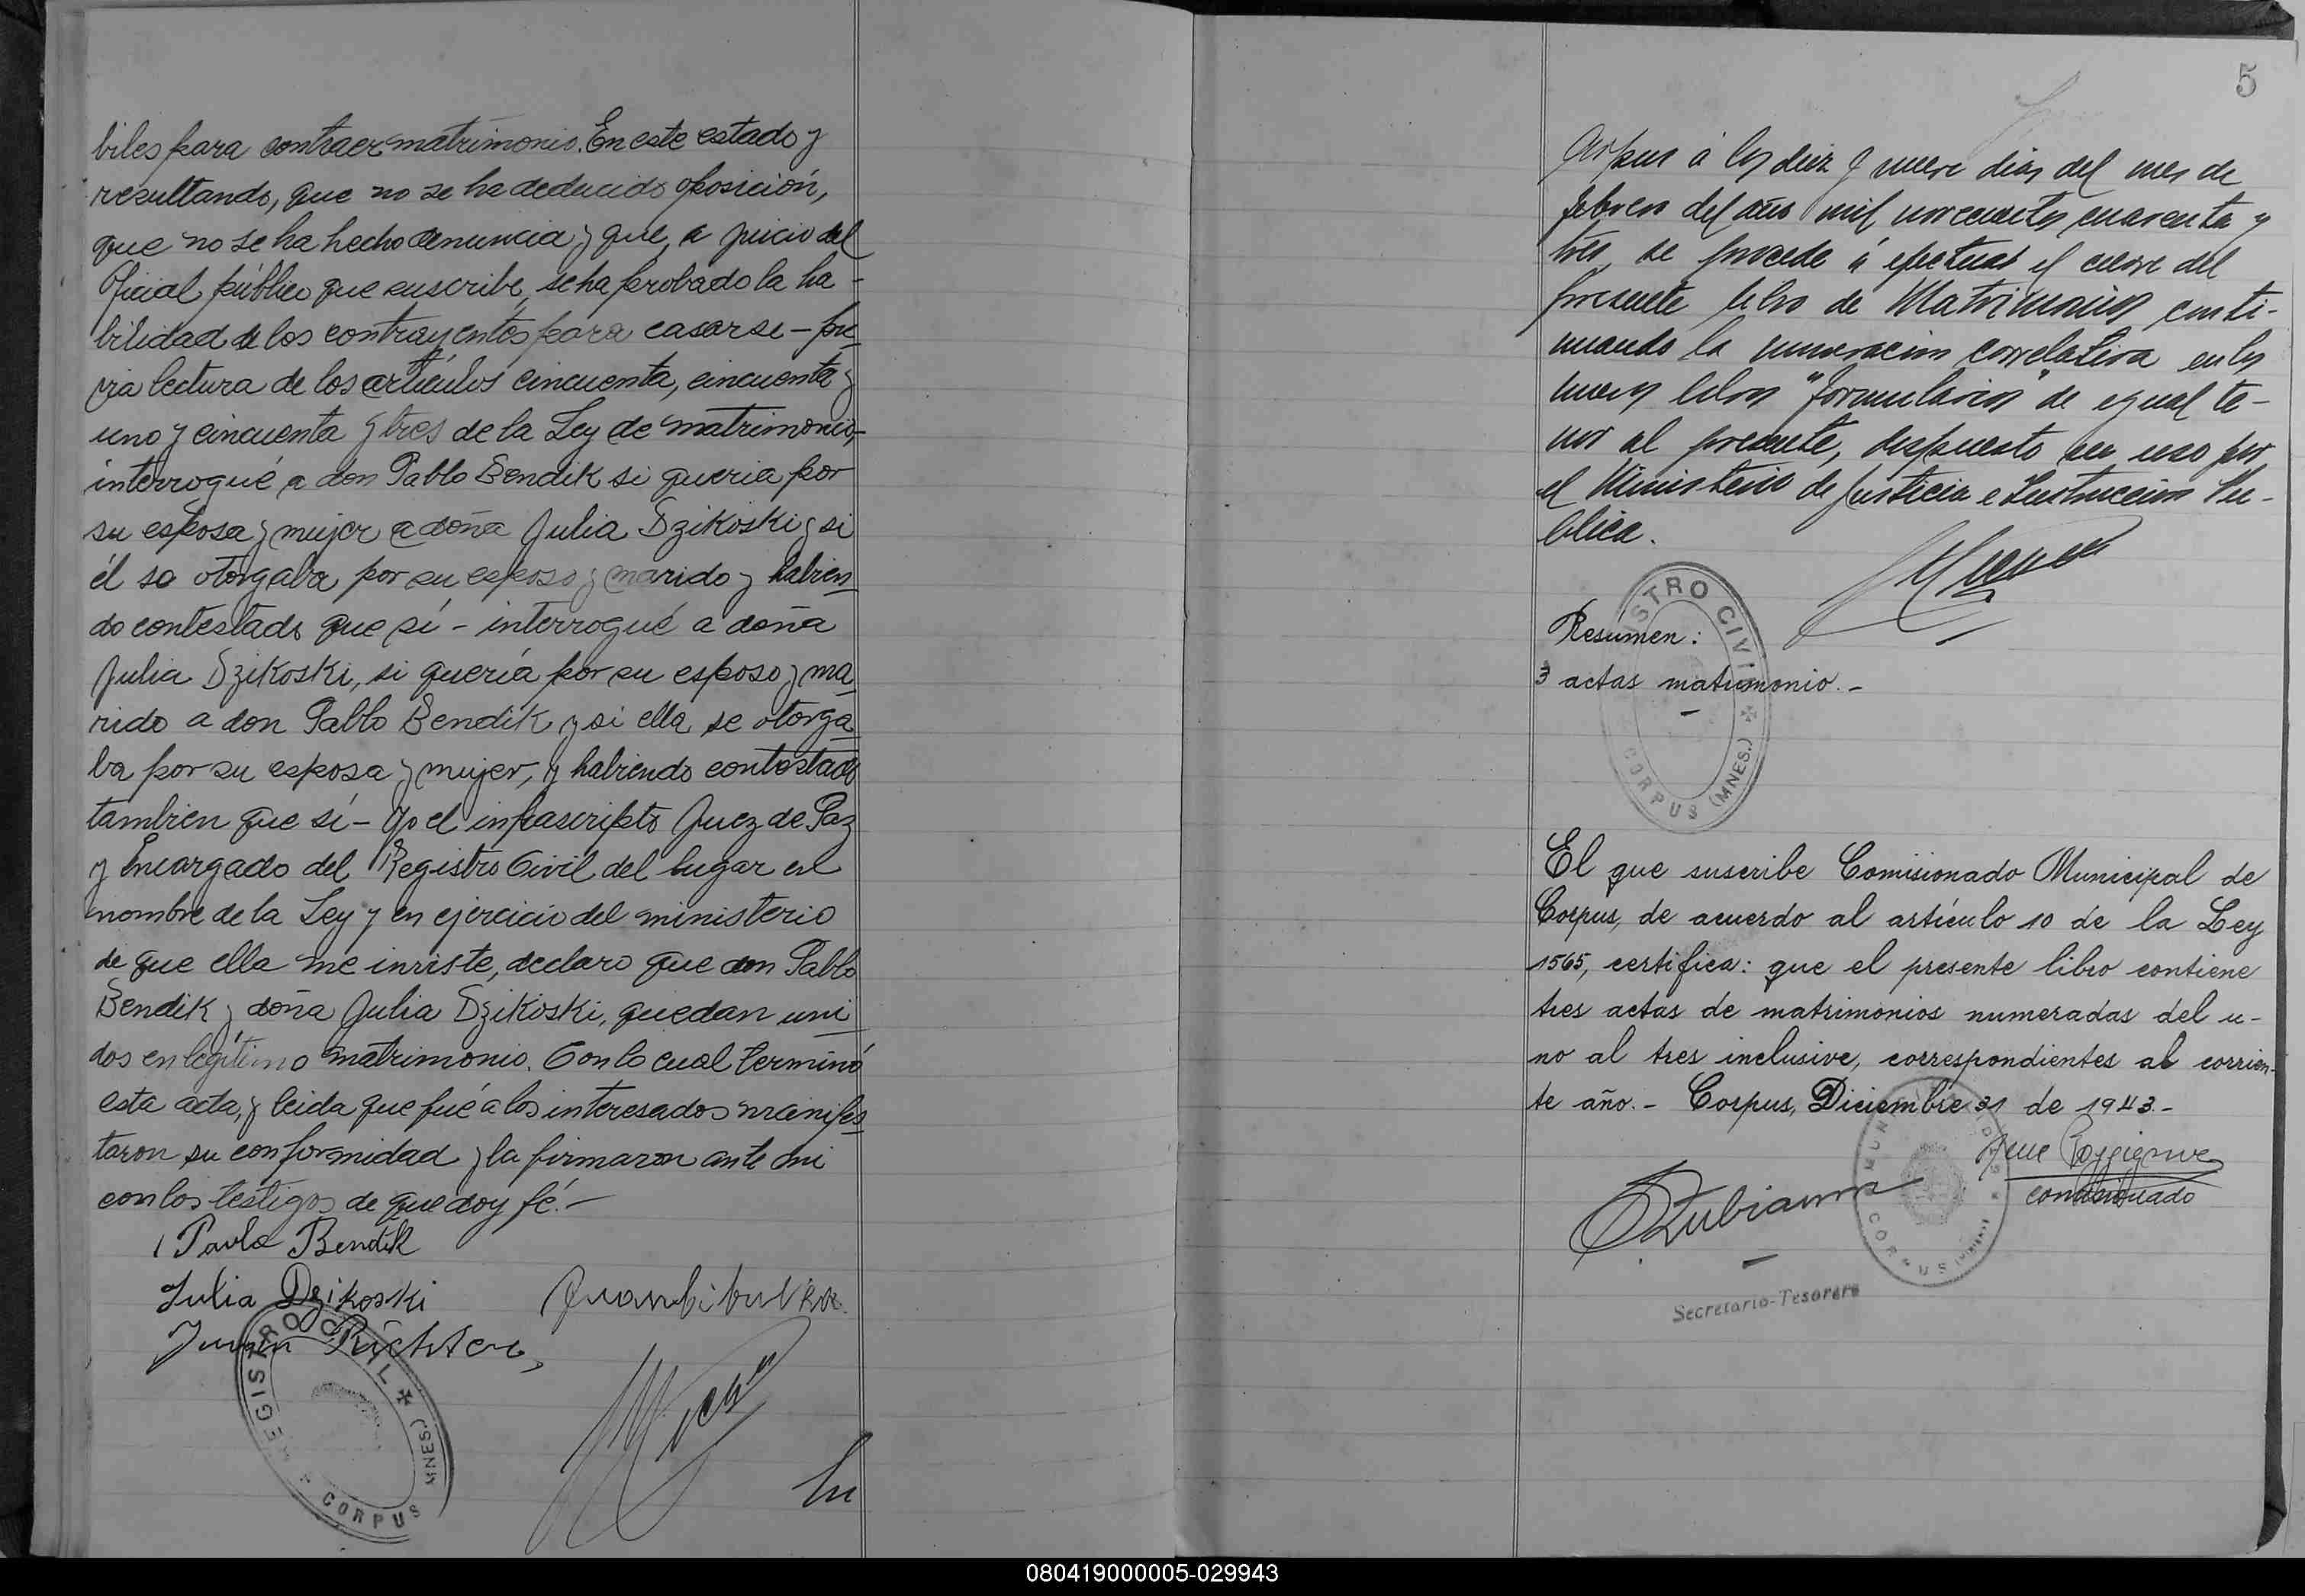 biles para contraer matrimonio. En este estado y
resultando, que no se ha deducido oposición,
que no se ha hecho denuncia y que, a juicio del
Oficial público que suscribe, se ha probado la ha-
bilidad de los contrayentes para casarse - pre
via lectura de los artículos cincuenta, cincuenta y
uno y cincuenta y tres de la Ley de matrimonio,-
interrogué a don Pablo Bendik si queria por
su esposa y mujer a doña Julia Dzikoski y si
él se otorgaba por su esposo y marido y habien
do contestado que sí - interrogué a doña
Julia Dzikoski, si quería por su esposo y ma
rido a don Pablo Bendik y si ella se otorga
ba por su esposa y mujer, y habiendo contestado
tambien que sí - Yo el infrascripto Juez de Paz
y Encargado del Registro Civil del lugar en
nombre de la Ley y en ejercicio del ministerio
de que ella me inviste, declaro que don Pablo
Bendik y doña Julia Dzikoski, quedan uni
dos en legítimo matrimonio. Con lo cual terminó
esta acta, y leida que fué a los interesados manifes
taron su conformidad y la firmaron ante mi
con los testigos de que doy fé.-
Pavlo Bendik
Julia Dzikoski
Richter
REGISTRO CIVIL
CORPUS (MNES.)
En
5
Corpus á los diez y nueve dias del mes de
febrero del año mil novecientos cuarenta y
tres, se procede á efectuar el cierre del
presente libro de Matrimonios conti-
nuando la numeracion correlativa en los
nuevos libros "formularios" de igual te-
nor al presente, dispuesto su uso por
el Ministerio de Justicia e Instruccion Pu-
blica.
REGISTRO CIVIL
CORPUS (MNES.)
Resumen:
3 actas matrimonio.-
El que suscribe Comisionado Municipal de
Corpus, de acuerdo al artículo 10 de la Ley
1565, certifica: que el presente libro contiene
tres actas de matrimonios numeradas del u-
no al tres inclusive, correspondientes al corrien-
te año.- Corpus, Diciembre 31 de 1943.-
Comisionado
CORPUS
Secretario-Tesorero
080419000005-029943